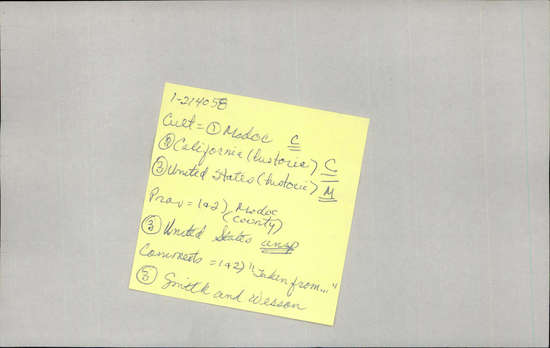 1-214058
Cult = ① Modoc C
② California (historic) C
③ United States (historic) M
Prov = 1+2) Modoc
(County)
③ United States ansp
Comments = 1+2) "Taken from..."
③ Smith and Wesson